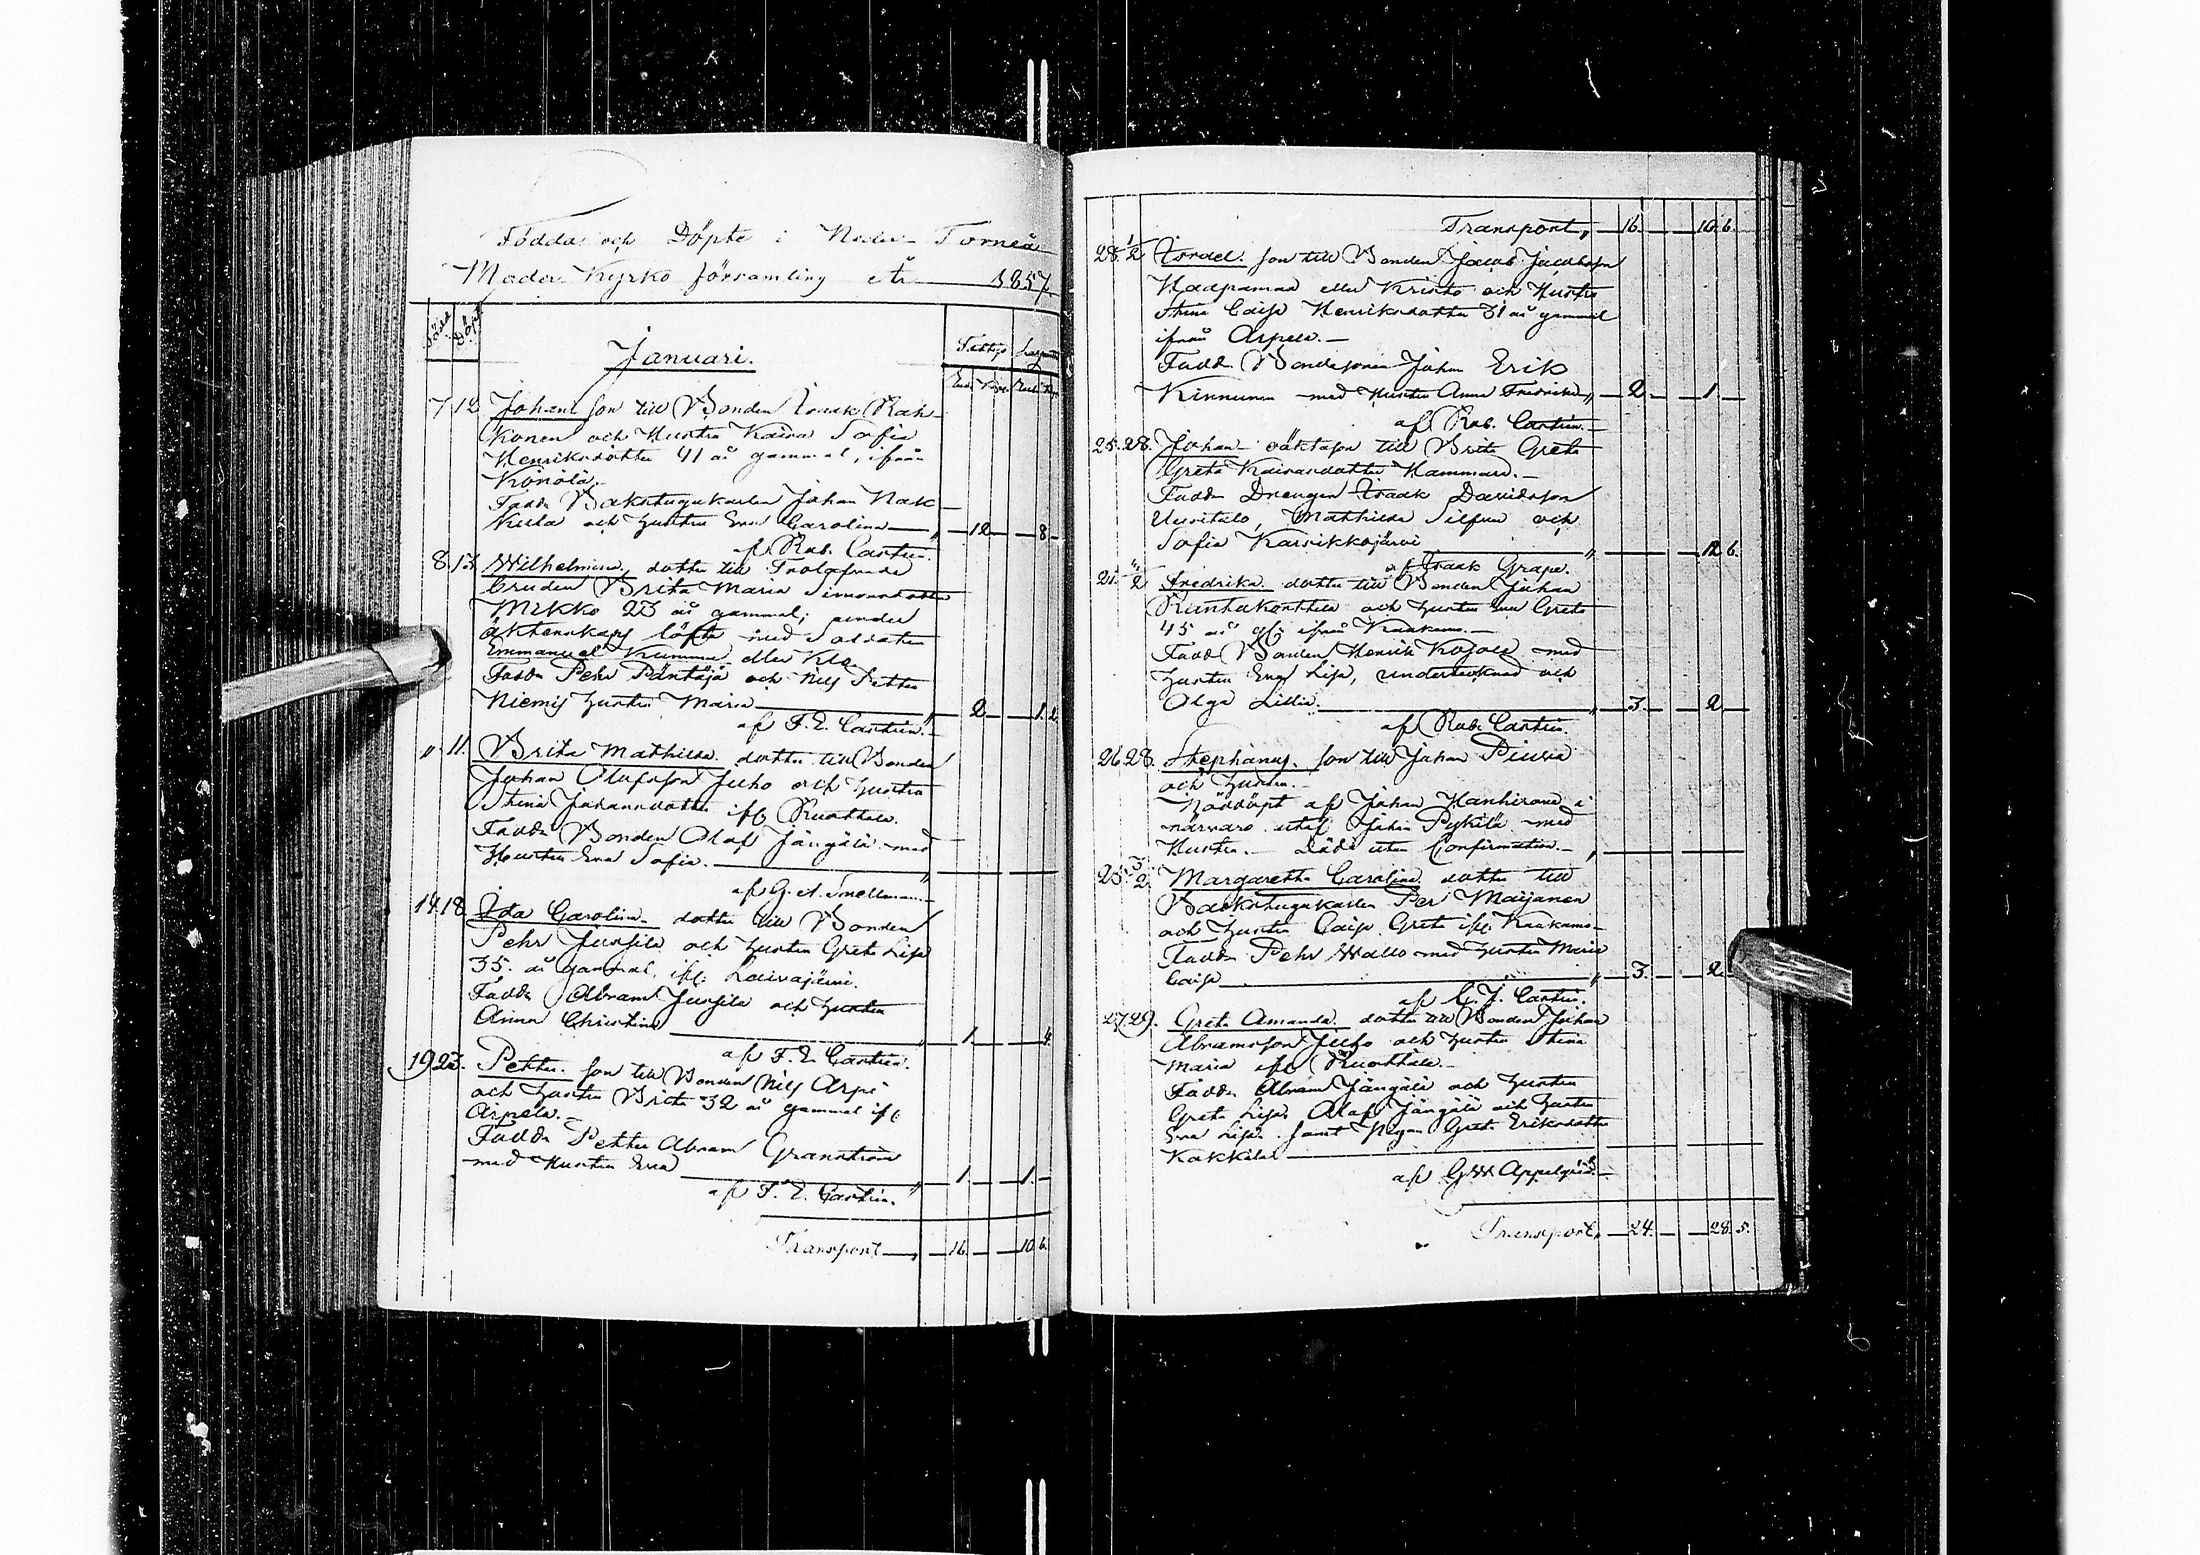 Födda och Döpte i Neder Torneå
Moder Kyrko församling År 1857.
Född Döpt
Januari.
7 12 Johan son till Bonden Isaak Rah-
konen och Hustru Kaisa Sofia
Henriksdotter 41 år gammal, ifrån
Könölä.
Fadd. Bakstugukarlen Johan Nak
kula och hustru Eva Carolina 12 8
af Rob. Castrén.
8. 13. Wilhelmina, dotter till
Brita Maria Simonsdotter
Mikko 23 år gammal; under
äktenskaps löfte med Soldaten
Emmanuel Kummu eller Klo
Fadd. Pehr Päntäjä och Nils Petter
Niemis hustru Maria 2 1. 2
af F. E. Castrén.
" 11. Brita Mathilda dotter till Bonden
Johan Olofsson Juho och hustru
Stina Johansdotter ifr. Ruottala.
Fadd. Bonden Olof Jängälä med
Hustru Eva Sofia.
af G. A. Snellman.
14. 18 Ida Carolina dotter till Bonden
Pehr Jussila och hustru Greta Lisa
35. år gammal, ifr. Laivajärvi.
Fadd. Abram Jussila och hustru
Anna Christina 1. 4.
af F. E. Castrén.
19 23. Petter. son till Bonden Nils Arpi
och hustru Brita 32 år gammal ifr
Arpela.
Fadd. Petter Abram Granström
med Hustru Eva 1. 1.
af F. E. Castrén.
Transport 16. 10. 6.
Transport, 16. 10. 6.
28. 1/2 Israel. son till Bonden Jacob Jacobsson
Haapamaa eller Kristo och Hustru
Stina Caisa Henriksdotter 31 år gammal
ifrån Arpela.
Fadd. Bondesonen Johan Erik
Kinnunen med Hustru Anna Fredrika 2. 1
af Rob. Castrén.
25. 28. Johan oäkta son till Brita Greta
Greta Kaisasdotter Hammari.
Fadd. Drengen Isaak Davidsson
Uusitalo, Mathilda Silfver och
Sofia Karsikkojärvi 12. 6.
af Isaak Grape.
21. 4/2 Fredrika. dotter till Bonden Johan
Runtukorttila och hustru Eva Greta
45 år g. ifrån Kaakamo.
Fadd. Bonden Henrik Kojola med
hustru Eva Lisa, undertecknad och
Olga Lillia. 3. 2.
af Rob. Castrén.
26. 28. Stephanus. son till Johan
och hustru.
Nöddöpt af Johan Hanhirova i
närvaro utaf Johan Pykälä med
Hustru. Död utan Confirmation.
25. 3/2. Margaretha Carolina dotter till
Backstugukarlen Per Maijanen
och hustru Caisa Greta ifr. Kaakamo
Fadd. Pehr Wallo med hustru Maria
Caisa 3. 2.
af C. J. Castrén.
27. 29. Greta Amanda. dotter till Bonden Johan
Abramsson Juho och hustru Stina
Maria ifr Ruottala.
Fadd. Abram Jängälä och hustru
Greta Lisa. Olof Jängälä och hustru
Eva Lisa. samt Pigan Greta Eriksdotter
Kakkila
af G. W. Appelgrén.
Transport, 24. 28. 5.